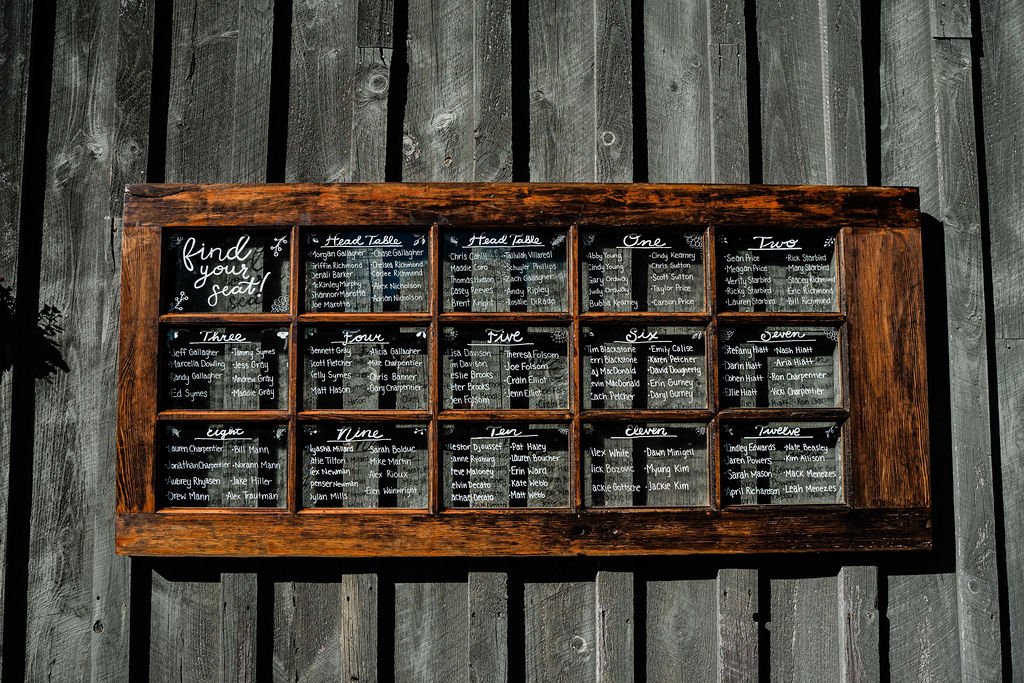 find
your
seat!
Head Table
Morgan Gallagher ·Chase Gallagher
Griffin Richmond ·Chelsea Richmond
Denali Barker ·Carlee Richmond
McKinley Murphy ·Alex Nicholson
Shannon Marotta ·Adrian Nicholson
Joe Marotta
Head Table
Chris Cahill ·Tallulah Villareal
Maddie Coro ·Schuyler Phillips
Thomas Hudgs ·Zach Gallagher
Casey Reeves ·Andy Ripley
Brent Knight ·Rosalie DiRado
One
Abby Young ·Cindy Kearney
Cindy Young ·Chris Sutton
Gary Ordway ·Scott Sutton
Judy Ordway ·Taylor Price
Bubba Kearney ·Carson Price
Two
·Sean Price ·Rick Starbird
·Meagan Price ·Mary Starbird
·Verity Starbird ·Stacey Richmond
·Ricky Starbird ·Eric Richmond
·Lauren Starbird ·Bill Richmond
Three
·Jeff Gallagher ·Tammy Symes
·Marcella Dowling ·Jess Gray
·Randy Gallagher ·Andrew Gray
·Ed Symes ·Maddie Gray
Four
·Bennett Gray ·Alicia Gallagher
·Scott Fletcher ·Mike Charpentier
·Kelly Symes ·Chris Banner
·Matt Hason ·Gary Charpentier
Five
Lisa Davison ·Theresa Folsom
Jim Davison ·Joe Folsom
Leslie Brooks ·Crain Elliot
Peter Brooks ·Jenn Elliot
Jen Folsom
Six
Tim Blackstone ·Emily Calise
Terri Blackstone ·Karen Pletcher
Taj MacDonald ·David Dougherty
Kevin MacDonald ·Erin Gurney
Zach Petcher ·Daryl Gurney
Seven
Stefany Hiatt ·Nash Hiatt
Darrin Hiatt ·Aria Hiatt
Cohen Hiatt ·Ron Charpentier
Ellie Hiatt ·Vicki Charpentier
Eight
·Lauren Charpentier ·Bill Mann
·Jonathan Charpentier ·Norann Mann
·Aubrey Rhyasen ·Jake Hiller
·Drew Mann ·Alex Trautman
Nine
Nyasha Millard ·Sarah Bolduc
Katie Tilton ·Mike Martin
Alex Newman ·Alex Rioux
Spenser Newman ·Eion Wainwright
Dylan Mills
Ten
Nestor Djoussef ·Pat Haley
Dianne Rysburg ·Lauren Boucher
Steve Maloney ·Erin Ward
Kelvin Decato ·Kate Webb
Rachael Decato ·Matt Webb
Eleven
Alex White ·Dawn Minigell
Nick Bozovic ·Myung Kim
Jackie Gottsche ·Jackie Kim
Twelve
Lindley Edwards ·Nate Beasley
Jaren Powers ·Kim Allison
Sarah Mason ·Mack Menezes
April Richardson ·Leah Menezes